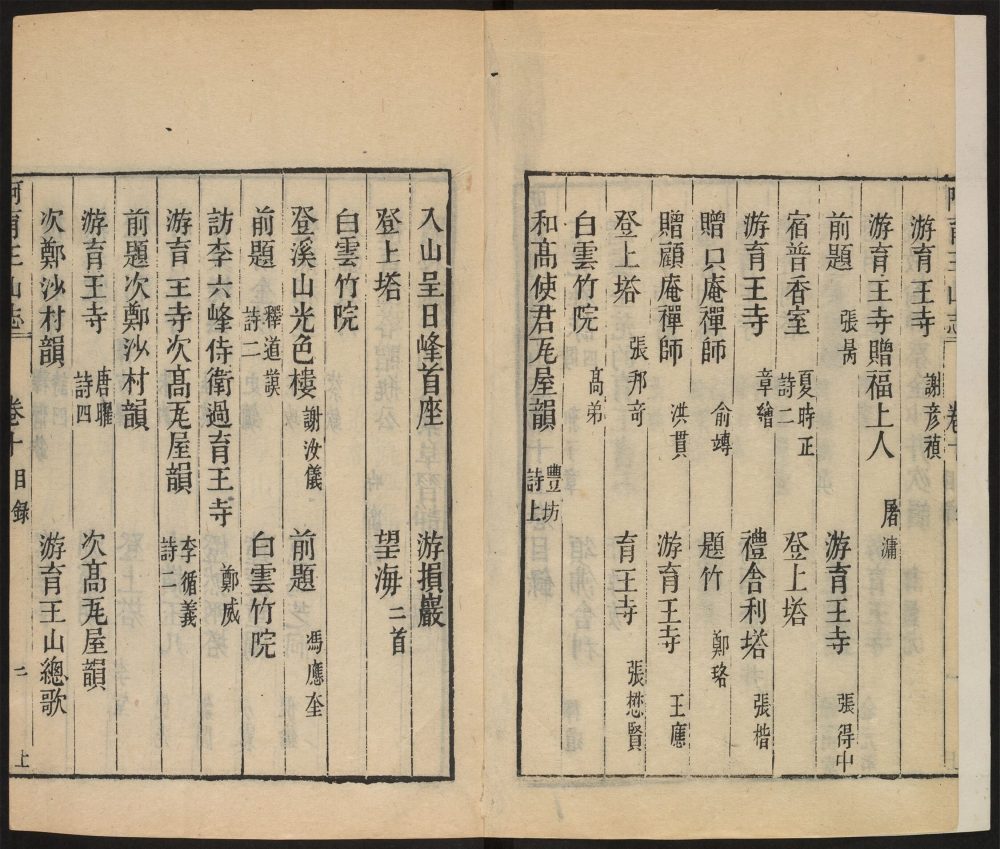 阿育王山志 卷十
游育王寺 謝彥禎
游育王寺贈福上人 屠滽
前題 張昺 游育王寺 張得中
宿普香室 夏時正詩二 登上塔
游育王寺 章繪 禮舍利塔 張楷
贈只庵禪師 俞竱 題竹 鄭珞
贈顧庵禪師 洪貫 游育王寺 王應
登上塔 張邦奇 育王寺 張懋賢
白雲竹院 高弟
和高使君瓦屋韻 豐坊詩上
入山呈日峰首座 游損巖
登上塔 望海 二首
白雲竹院
登溪山光色樓 謝汝儀 前題 馮應奎
前題 釋道詖詩二 白雲竹院
訪李六峰侍衛過育王寺 鄭威
游育王寺次高瓦屋韻 李循義詩二
前題次鄭沙村韻
游育王寺 唐曜詩四 次高瓦屋韻
次鄭沙村韻 游育王山總歌
阿育王山志 卷十目錄 二 上